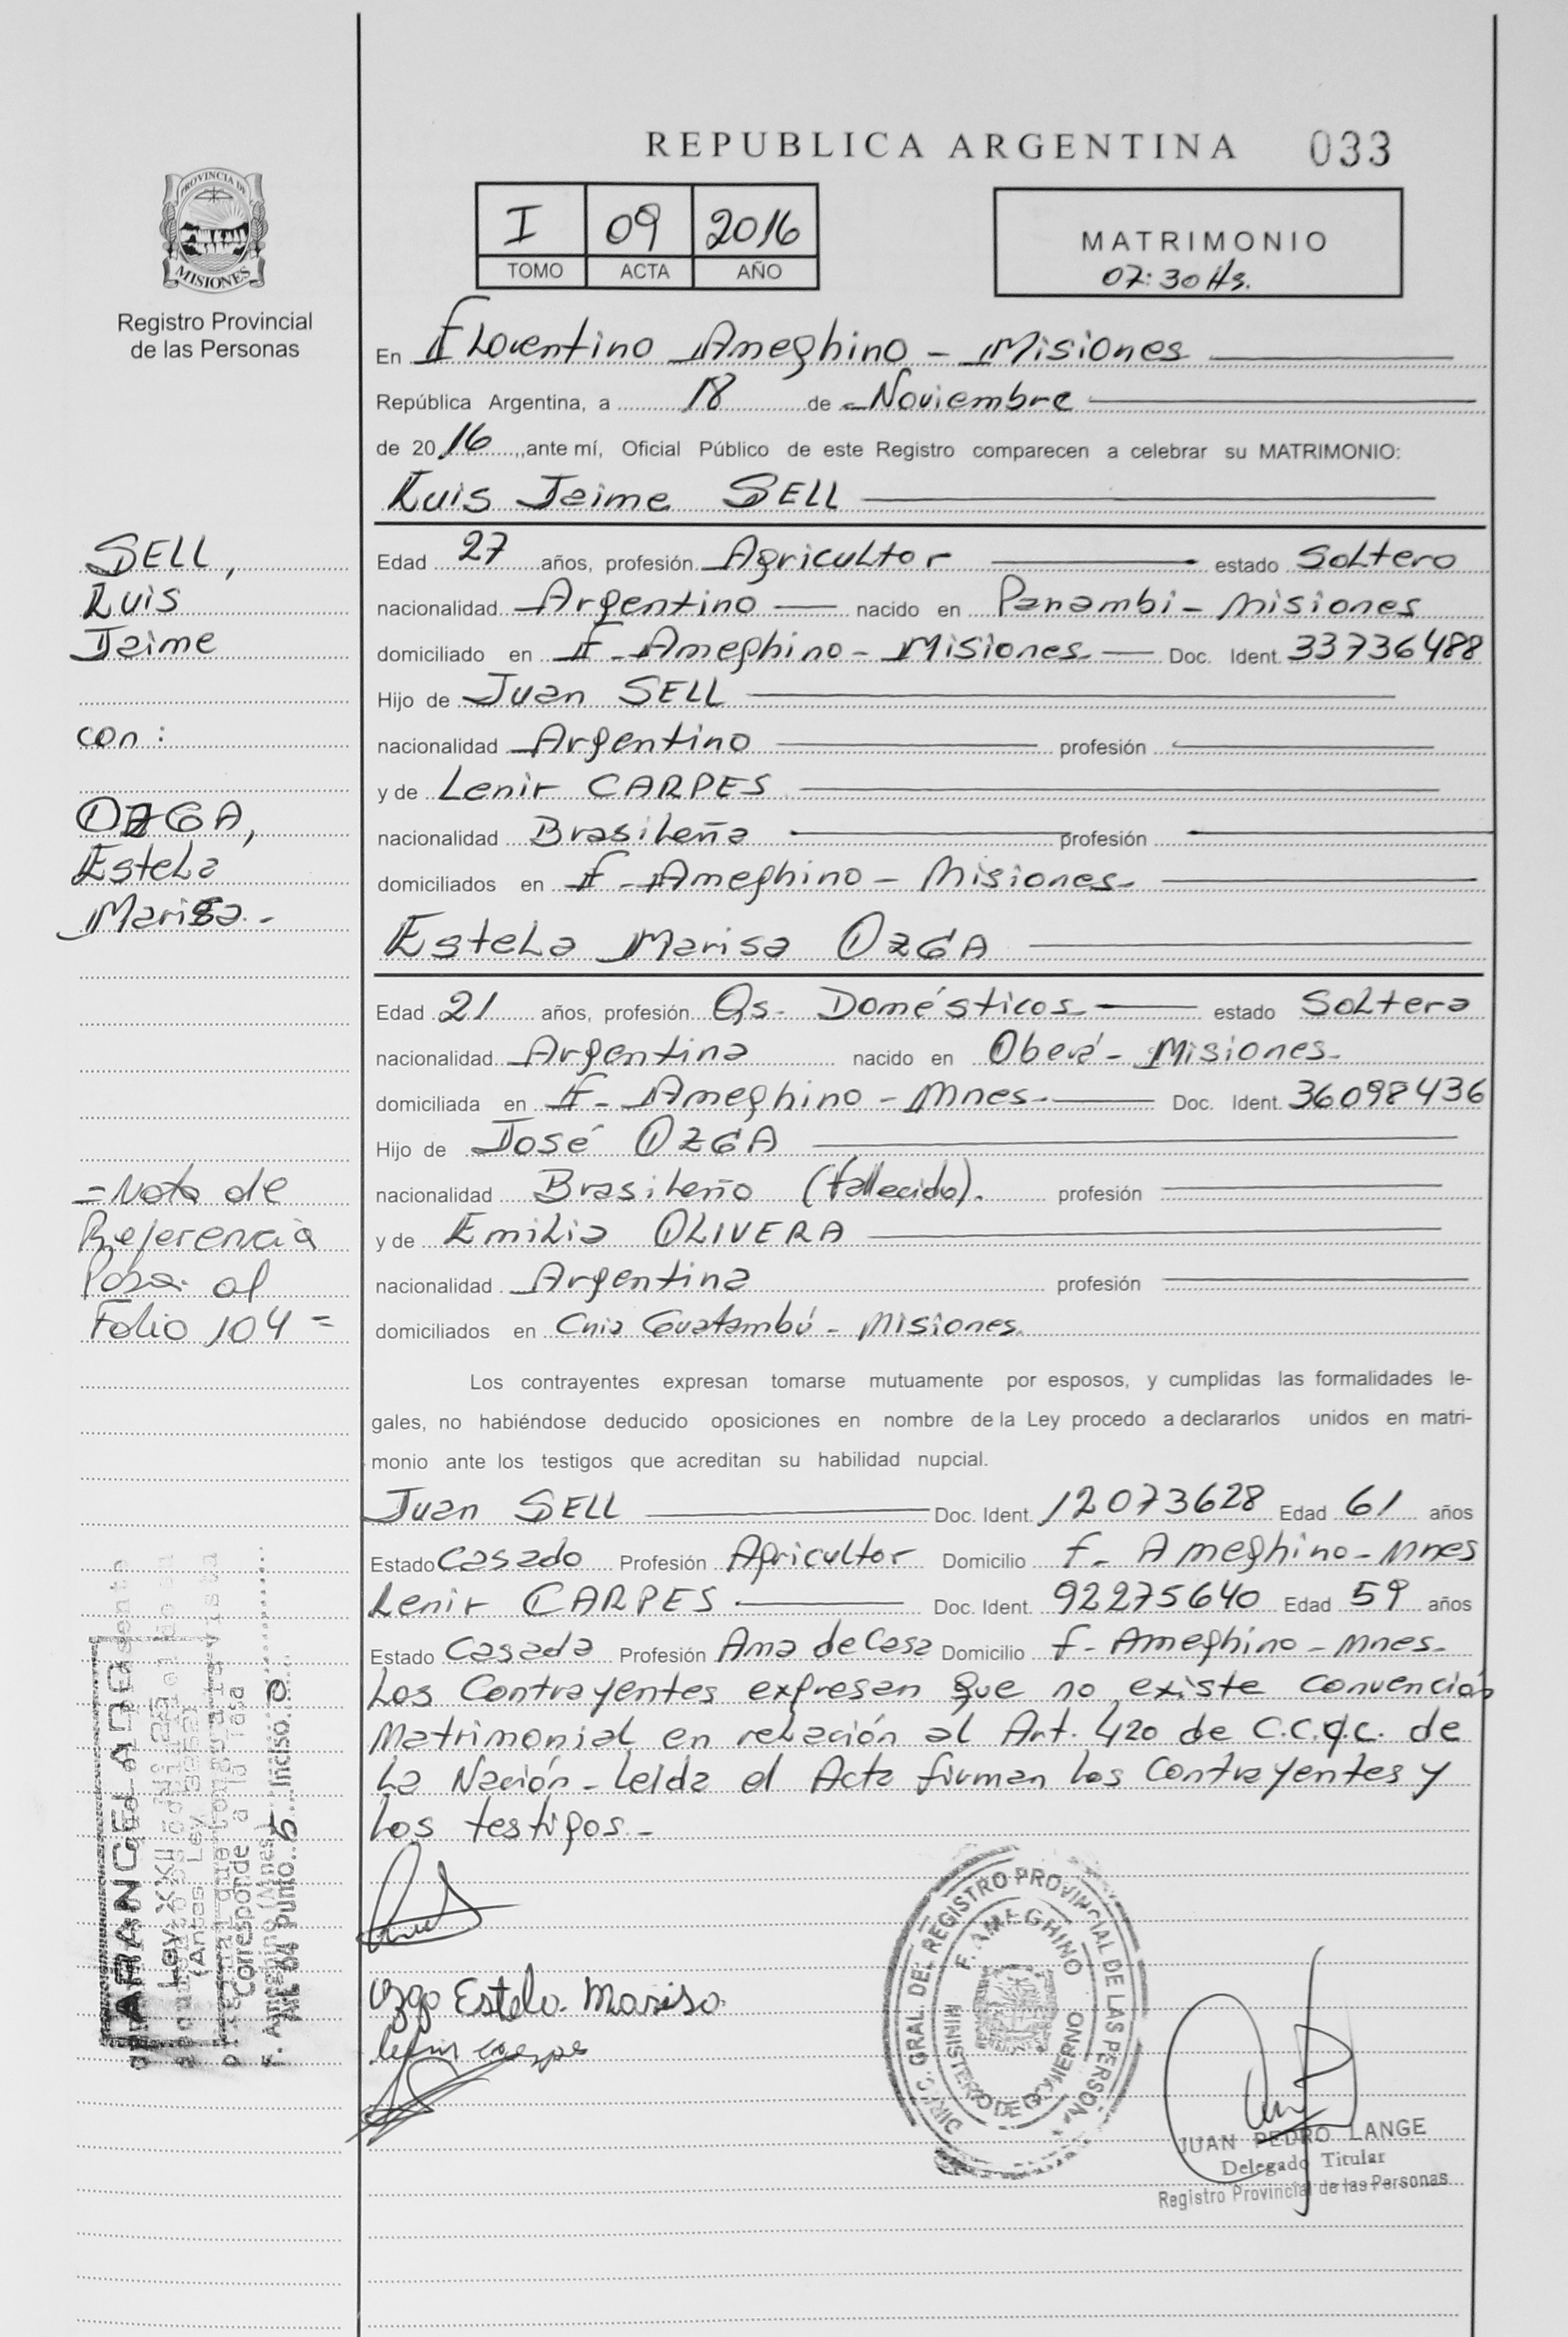 REPUBLICA ARGENTINA 033
PROVINCIA DE
MISIONES
Registro Provincial
de las Personas
I 09 2016
TOMO ACTA AÑO
MATRIMONIO
07:30 Hs.
En Florentino Ameghino - Misiones
República Argentina, a 18 de Noviembre
de 2016, ante mí, Oficial Público de este Registro comparecen a celebrar su MATRIMONIO:
Luis Jaime SELL
SELL,
Luis
Jaime
con:
OZGA,
Estela
Marisa.-
Edad 27 años, profesión Agricultor estado Soltero
nacionalidad Argentino nacido en Panambi - Misiones
domiciliado en F. Ameghino - Misiones Doc. Ident. 33736488
Hijo de Juan SELL
nacionalidad Argentino profesión
y de Lenir CARPES
nacionalidad Brasileña profesión
domiciliados en F. Ameghino - Misiones-
Estela Marisa OZGA
Edad 21 años, profesión Qs. Domésticos- estado Soltera
nacionalidad Argentina nacido en Oberá - Misiones-
domiciliada en F. Ameghino - Mnes- Doc. Ident. 36098436
Hijo de José OZGA
nacionalidad Brasileño (fallecido). profesión
y de Emilia OLIVERA
nacionalidad Argentina profesión
domiciliados en Cnia Guatambú - Misiones.
=Nota de
Referencia
Pasa al
Folio 104=
Los contrayentes expresan tomarse mutuamente por esposos, y cumplidas las formalidades le-
gales, no habiéndose deducido oposiciones en nombre de la Ley procedo a declararlos unidos en matri-
monio ante los testigos que acreditan su habilidad nupcial.
Juan SELL Doc. Ident. 12073628 Edad 61 años
Estado Casado Profesión Agricultor Domicilio F. Ameghino - Mnes
Lenir CARPES Doc. Ident. 92275640 Edad 59 años
Estado Casada Profesión Ama de Casa Domicilio F. Ameghino - Mnes-
Los Contrayentes expresan que no existe convención
Matrimonial en relación al Art. 420 de C.C.y C. de
La Nación - Leída el Acta firman los Contrayentes y
los testigos-
ARANCELADO
Ley XXII
(Antes Ley
Corresponde a la Tasa
Punto 6 Inciso a
Ozga Estela Marisa
Lenir Carpes
DIREC. GRAL. DEL REGISTRO PROVINCIAL DE LAS PERSONAS
F. AMEGHINO
MINISTERIO DE GOBIERNO
JUAN PEDRO LANGE
Delegado Titular
Registro Provincial de las Personas